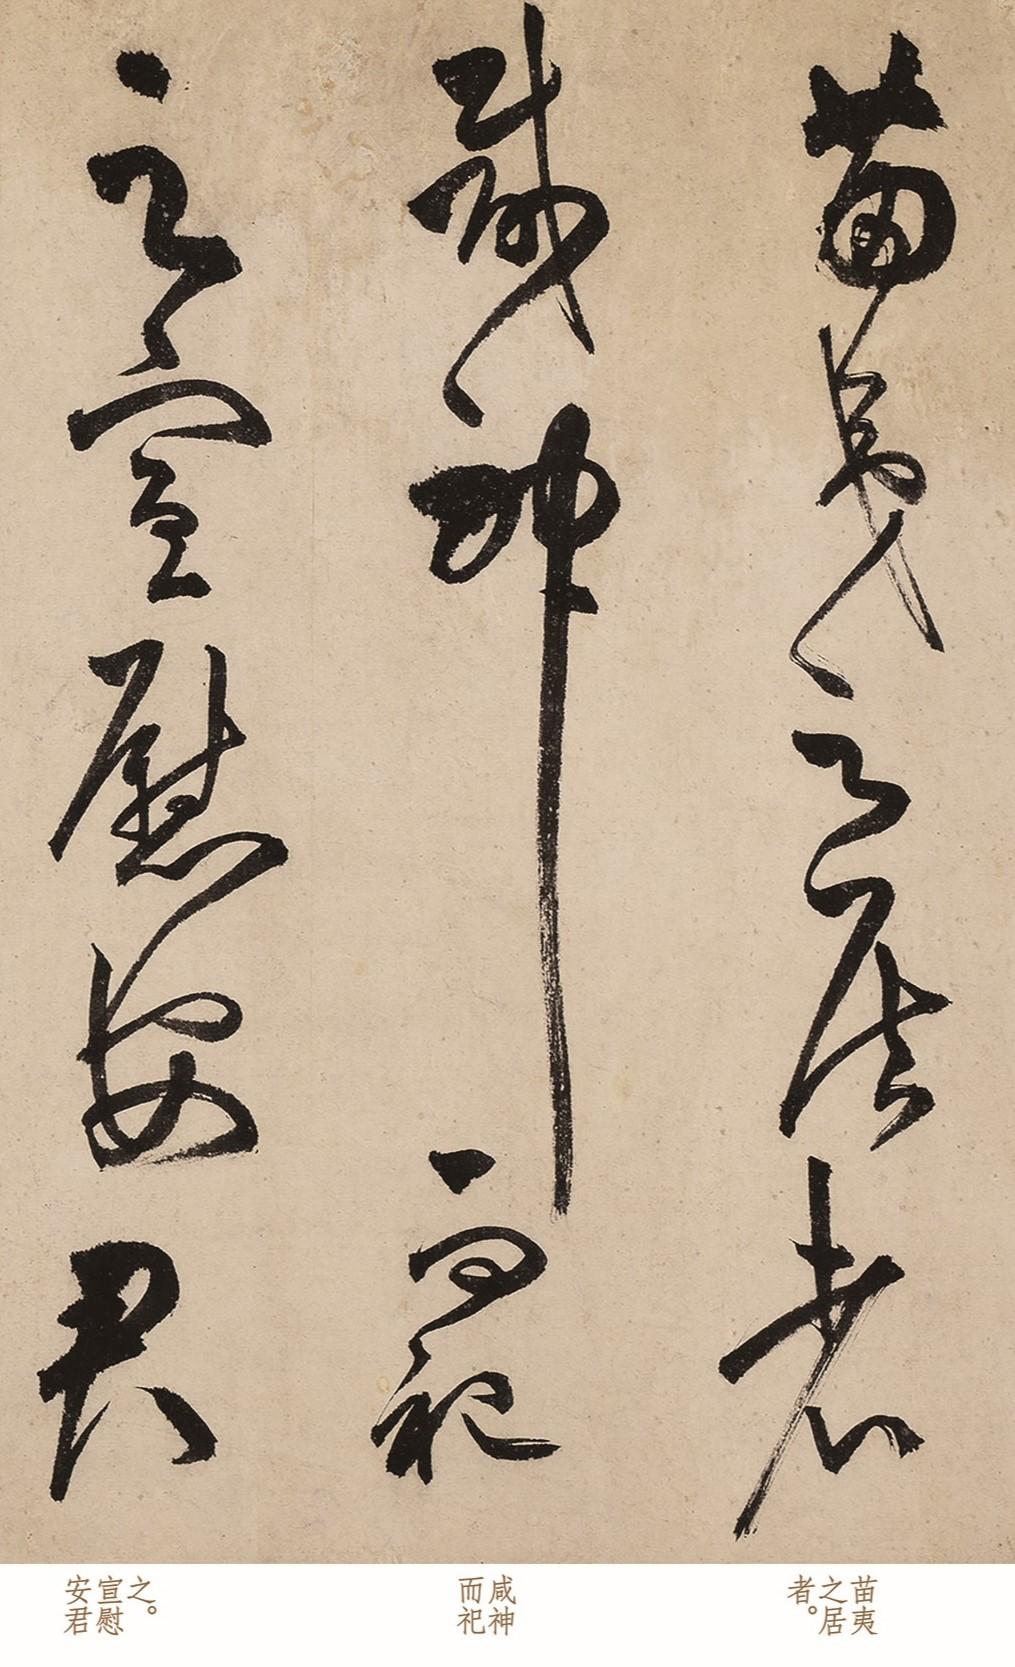 苗夷之居者
咸神而祀
之宣慰安君
苗夷
之居
者。
咸神
而祀
之。
宣慰
安君